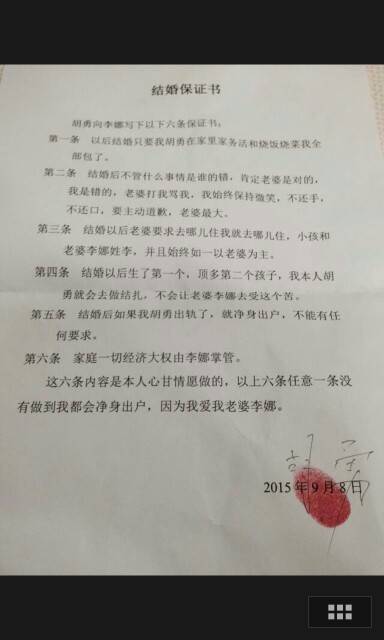 结婚保证书
胡勇向李娜写下以下六条保证书：
第一条 以后结婚只要我胡勇在家里家务活和烧饭烧菜我全
部包了。
第二条 结婚后不管什么事情是谁的错，肯定老婆是对的，
我是错的，老婆打我骂我，我始终保持微笑，不还手，
不还口，要主动道歉，老婆最大。
第三条 结婚以后老婆要求去哪儿住我就去哪儿住，小孩和
老婆李娜姓李，并且始终如一以老婆为主。
第四条 结婚以后生了第一个，顶多第二个孩子，我本人胡
勇就会去做结扎，不会让老婆李娜去受这个苦。
第五条 结婚后如果我胡勇出轨了，就净身出户，不能有任
何要求。
第六条 家庭一切经济大权由李娜掌管。
这六条内容是本人心甘情愿做的，以上六条任意一条没
有做到我都会净身出户，因为我爱我老婆李娜。
胡勇
2015年9月8日